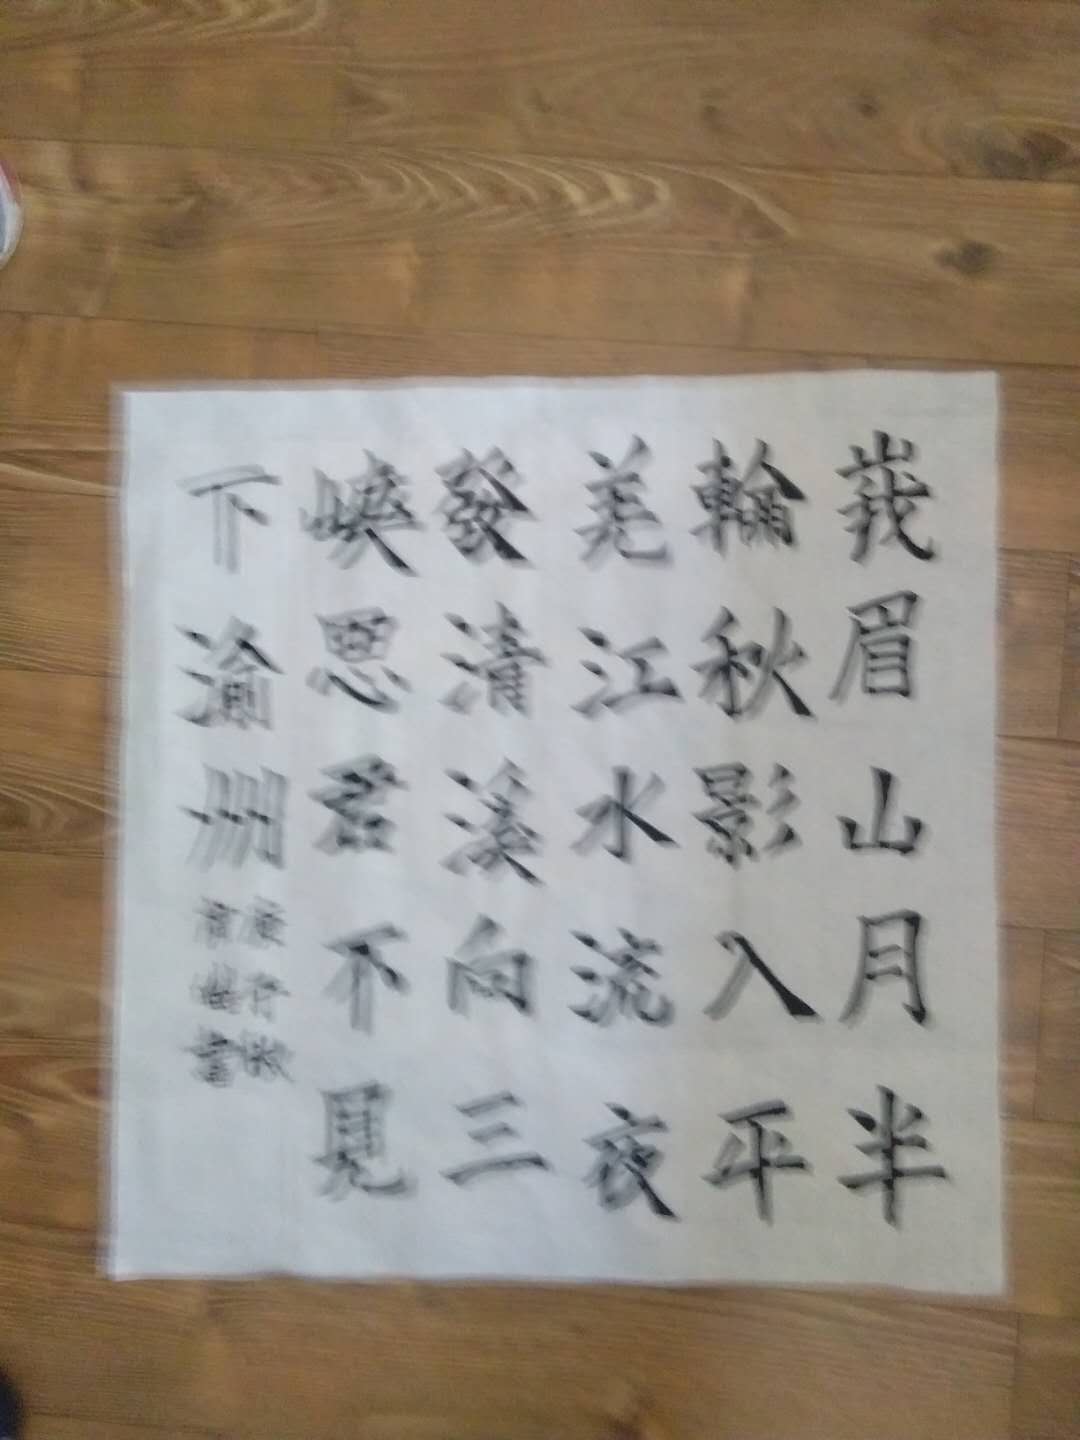 峩眉山月半
輪秋影入平
羌江水流夜
發清溪向三
峽思君不見
下渝州